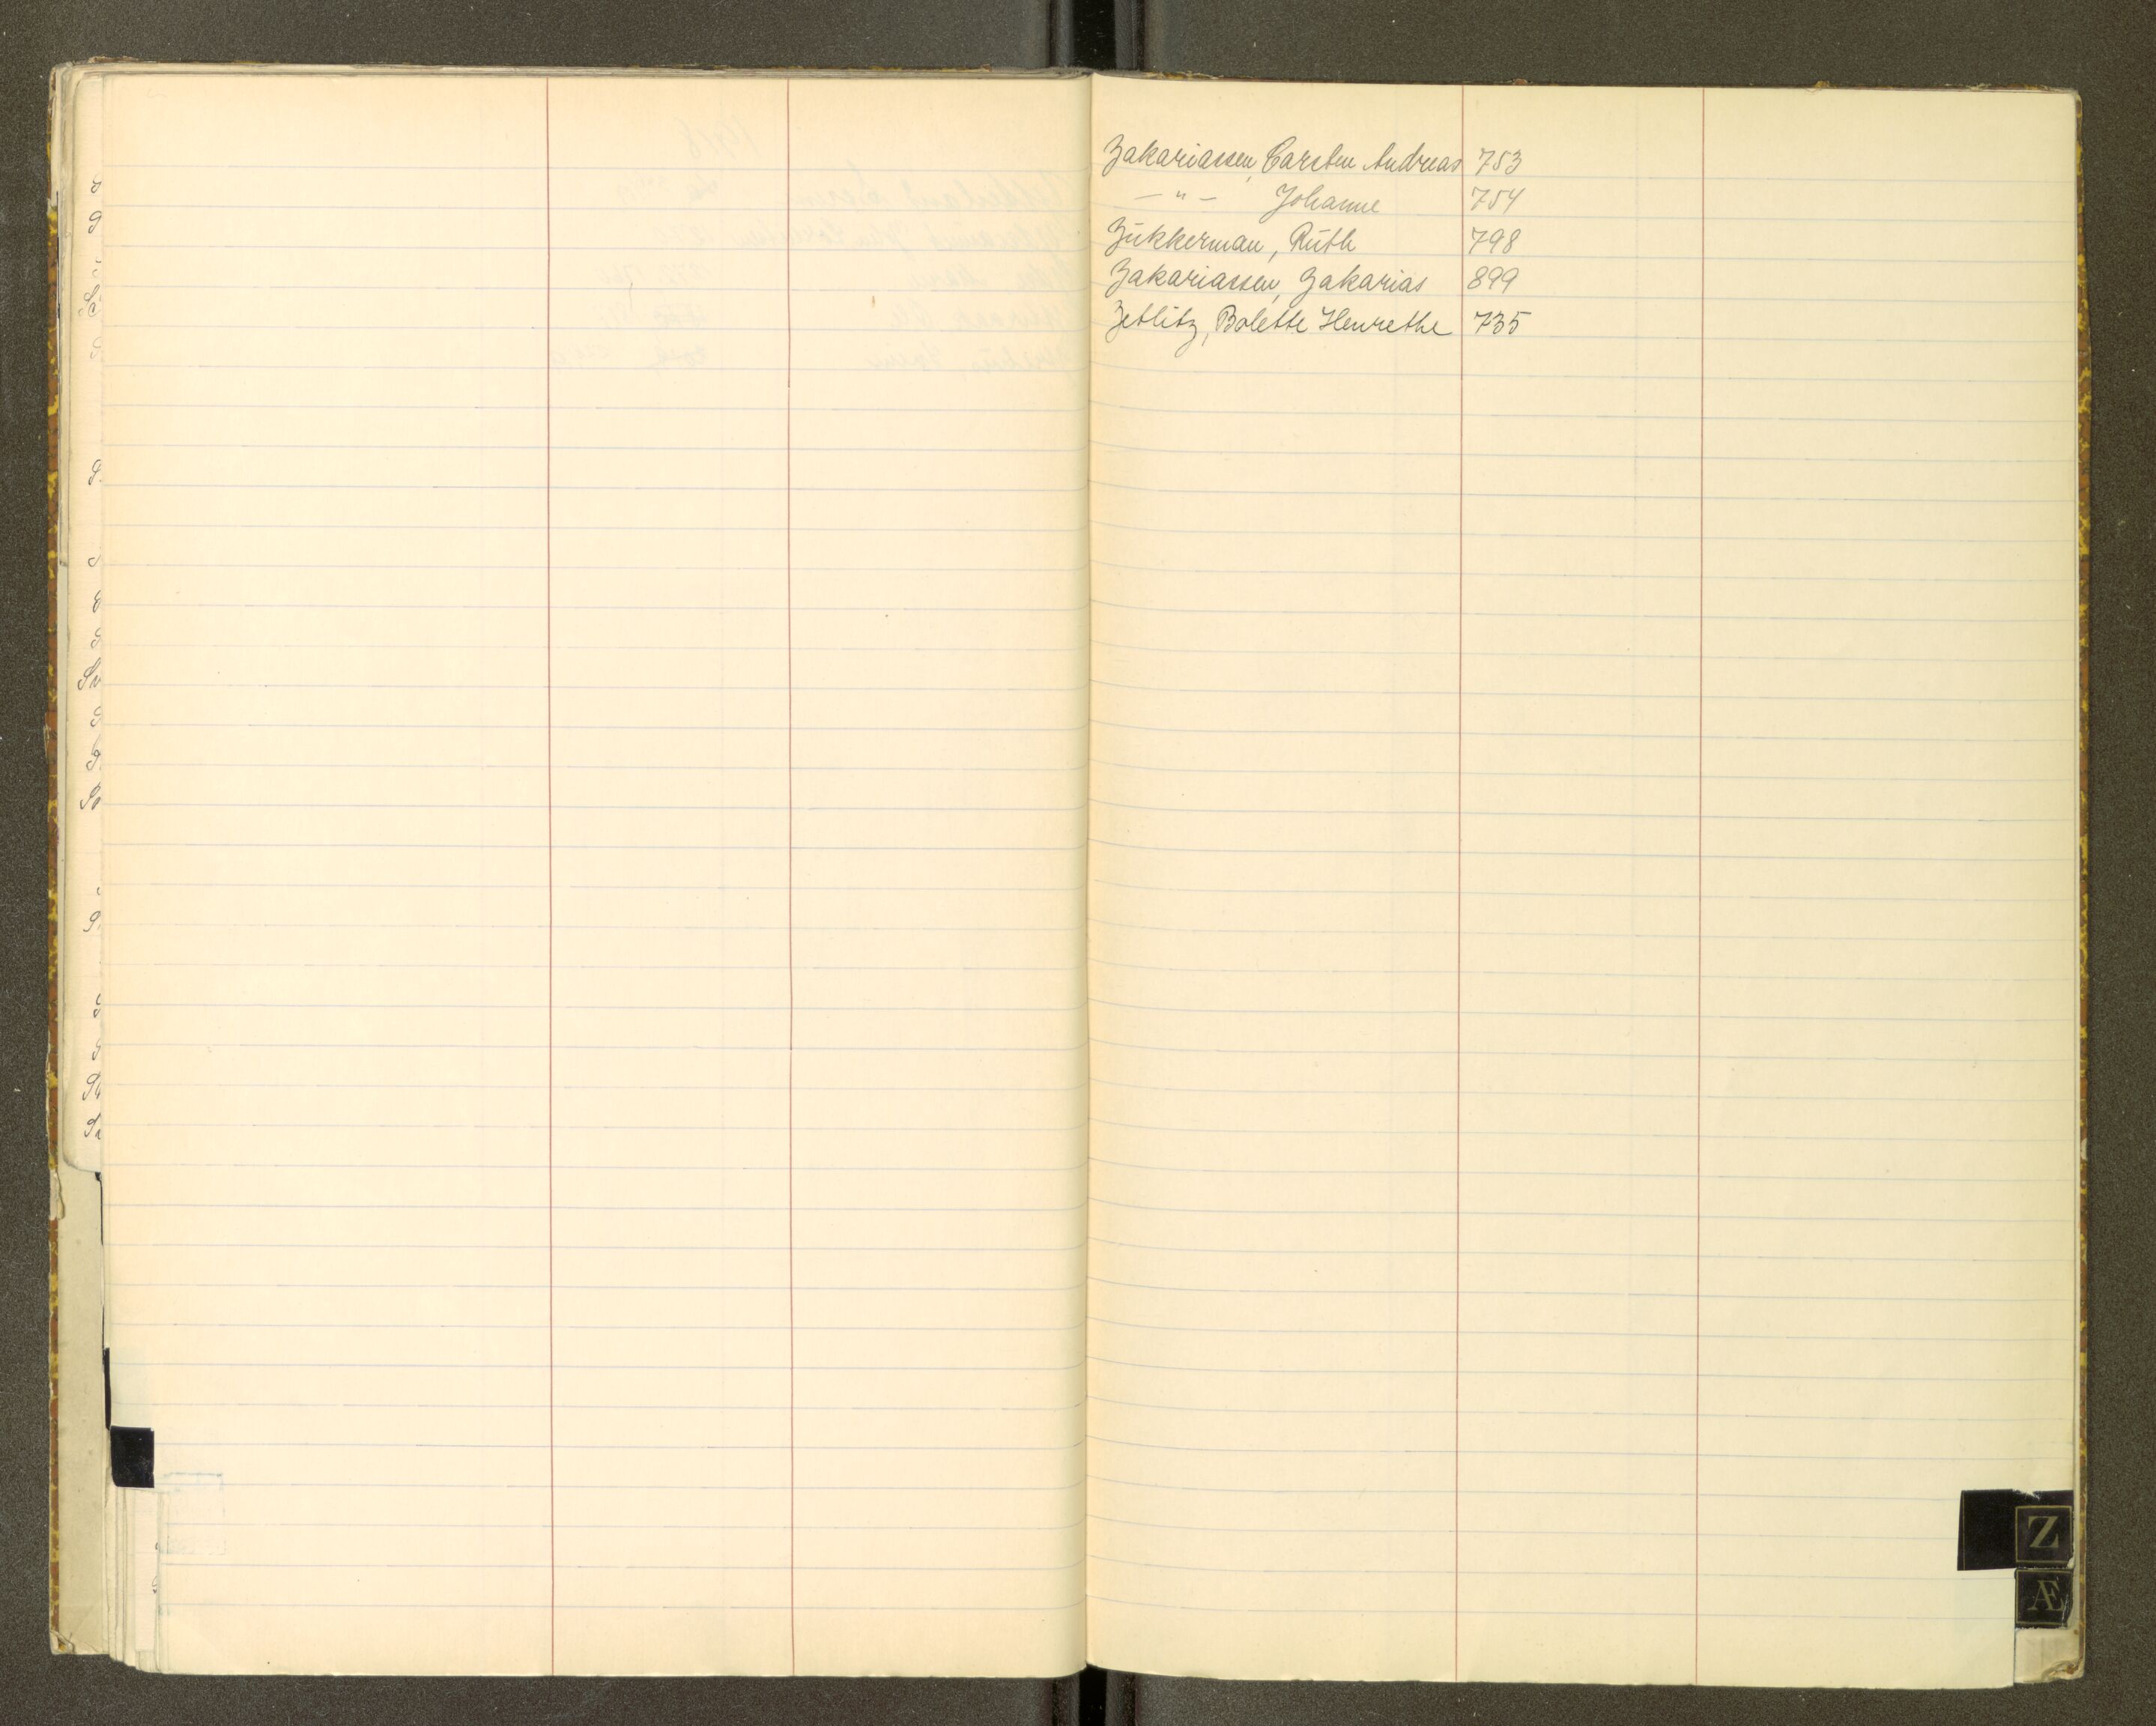 Zakariassen, Carsten Andreas 753
— " — Johanne 754
Zukkerman, Ruth 798
Zakariassen, Zakarias 899
Zetlitz, Bolette Henrethe 735
Z
Æ